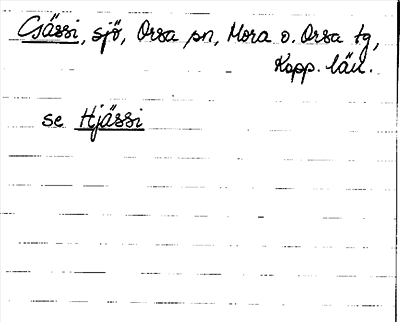 Gässi, sjö, Orsa sn, Mora o. Orsa tg,
Kopp. län.
se Hjässi